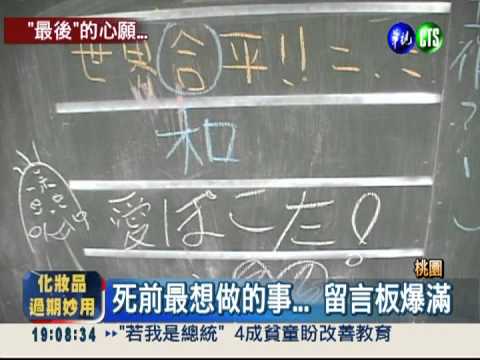 "最後"的心願...
華視 CTS
世界合平!!
和
愛ぽこた!
桃園
化妝品
過期妙用
死前最想做的事... 留言板爆滿
19:08:34 "若我是總統" 4成貧童盼改善教育